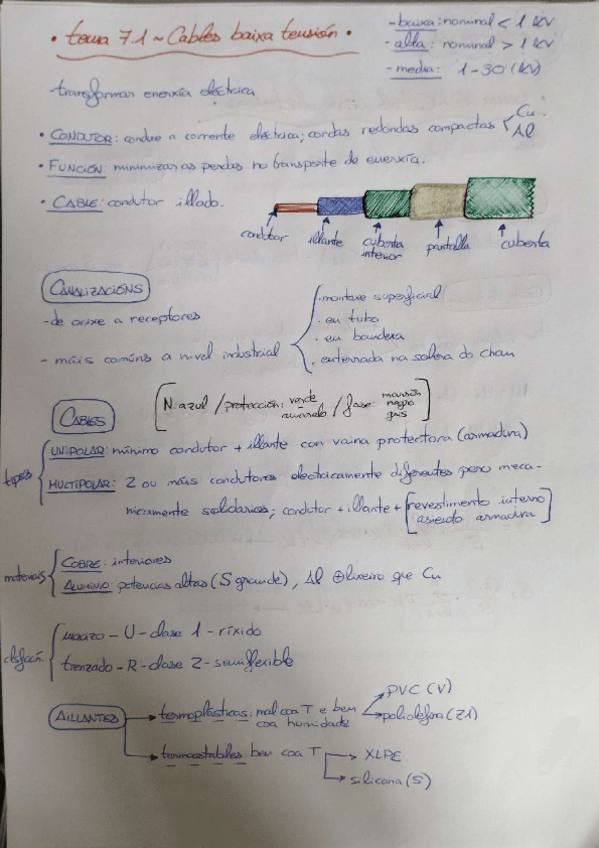 • tema 7.1 ~ Cables baixa tensión •
- baixa: nominal < 1 kV
- alta: nominal > 1 kV
- media: 1-30 (kV)
- transformar enerxía eléctrica
• CONDUTOR: conduce a corrente eléctrica; cordas redondas compactas < Cu
Al
• FUNCIÓN: minimizar as perdas no transporte de enerxía.
• CABLE: condutor illado.
condutor illante cuberta interior pantalla cuberta
CANALIZACIÓNS
- de orixe a receptores
- máis comúns a nivel industrial
. montaxe superficial
. en tubo
. en bandexa
. enterrada na soleira do chan
[N: azul / protección: verde amarelo / fase: marrón negro gris]
CABLES
tipos
UNIPOLAR: mínimo condutor + illante con vaina protectora (armadura)
MULTIPOLAR: 2 ou máis condutores electricamente diferentes pero meca-
nicamente solidarios; condutor + illante + [revestimento interno
asiendo armadura]
materiais
COBRE: interiores
ALUMINIO: potencias altas (S grande), Al ⊕ lixeiro que Cu
macizo - U - clase 1 - ríxido
trenzado - R - clase 2 - semiflexible
AILLANTES
termoplásticos: mal coa T e ben
coa humidade
PVC (V)
poliolefina (Z1)
termoestables: ben coa T
XLPE
silicona (S)